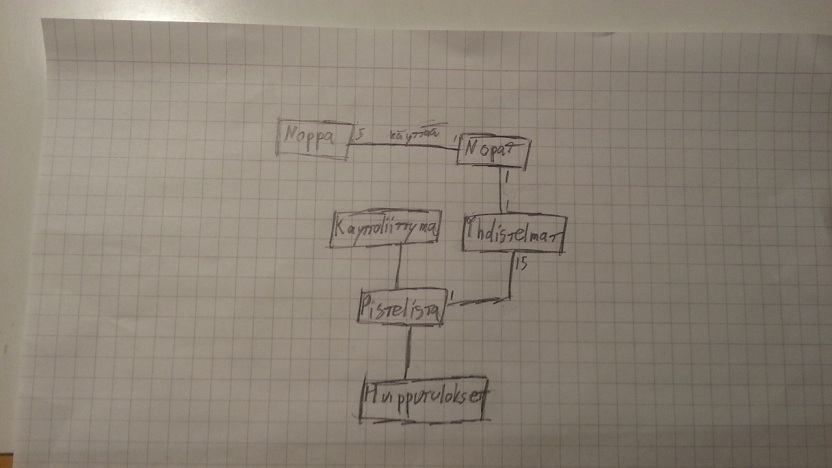 Noppa 5 käyttää 1 Nopat
1
1
Käyttöliittymä Yhdistelmät
15
Pistelista 1
Huipputulokset